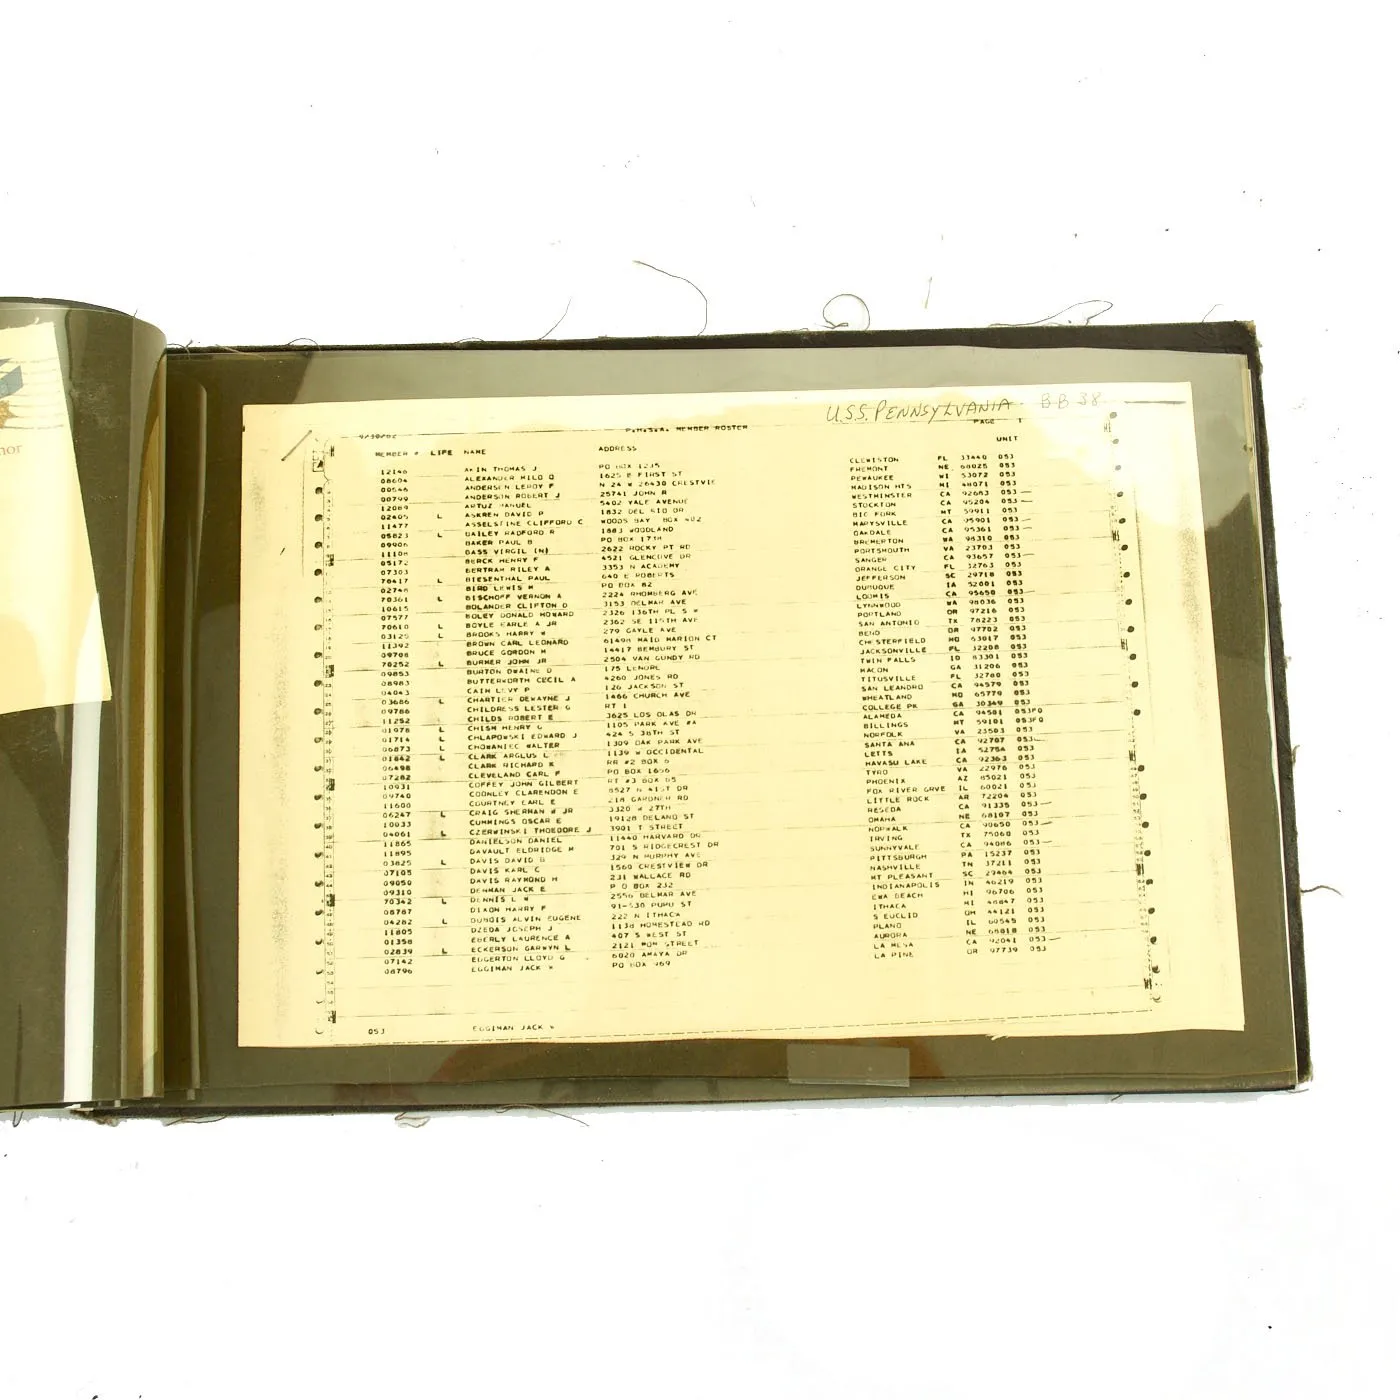 U.S.S. PENNSYLVANIA BB 38
9/30/82 P.H.S.A. MEMBER ROSTER PAGE 1
MEMBER # LIFE NAME ADDRESS UNIT
12146 AKIN THOMAS J PO BOX 1235 CLEWISTON FL 33440 053
08604 ALEXANDER MILO D 1625 E FIRST ST FREMONT NE 68025 053
00546 ANDERSEN LEROY F N 24 W 26430 CRESTVIE PEWAUKEE WI 53072 053
00799 ANDERSON ROBERT J 25741 JOHN R MADISON HTS MI 48071 053
12089 ARTUZ MANUEL 5402 YALE AVENUE WESTMINSTER CA 92683 053
02405 L ASKREN DAVID P 1832 DEL RIO DR STOCKTON CA 95204 053
11477 ASSELSTINE CLIFFORD C WOODS BAY BOX 402 BIG FORK MT 59911 053
05823 L BAILEY RADFORD R 1883 WOODLAND MARYSVILLE CA 95901 053
09906 BAKER PAUL B PO BOX 1738 OAKDALE CA 95361 053
11108 BASS VIRGIL (N) 2622 ROCKY PT RD BREMERTON WA 98310 053
05172 BERCK HENRY F 4521 GLENCOVE DR PORTSMOUTH VA 23703 053
07303 BERTRAM RILEY A 3353 N ACADEMY SANGER CA 93657 053
70417 L BIESENTHAL PAUL 640 E ROBERTS ORANGE CITY FL 32763 053
02748 BIRD LEWIS M PO BOX 82 JEFFERSON SC 29718 053
70361 L BISCHOFF VERNON A 2224 RHOMBERG AVE DUBUQUE IA 52001 053
10615 BOLANDER CLIFTON D 3153 DELMAR AVE LOOMIS CA 95650 053
07577 BOLEY DONALD HOWARD 2326 136TH PL S W LYNNWOOD WA 98036 053
70610 L BOYLE EARLE A JR 2362 SE 115TH AVE PORTLAND OR 97216 053
03125 L BROOKS HARRY W 279 GAYLE AVE SAN ANTONIO TX 78223 053
11392 BROWN CARL LEONARD 61498 MAID MARION CT BEND OR 97702 053
09708 BRUCE GORDON M 14417 BEMBURY ST CHESTERFIELD MO 63017 053
70252 L BURMER JOHN JR 2504 VAN GUNDY RD JACKSONVILLE FL 32208 053
09853 BURTON DWAINE D 175 LENORE TWIN FALLS ID 83301 053
08983 BUTTERWORTH CECIL A 4260 JONES RD MACON GA 31206 053
04043 CAIN LEVY P 126 JACKSON ST TITUSVILLE FL 32780 053
03686 L CHARTIER DEWAYNE J 1466 CHURCH AVE SAN LEANDRO CA 94579 053
09786 CHILDRESS LESTER G RT 1 WHEATLAND MO 65779 053
11252 CHILDS ROBERT E 3625 LOS OLAS DR COLLEGE PK GA 30349 053
01978 L CHISM HENRY G 1105 PARK AVE #A ALAMEDA CA 94501 053PO
01714 L CHLAPOWSKI EDWARD J 424 S 38TH ST BILLINGS MT 59101 053PO
06873 L CHOWANIEC WALTER 1309 OAK PARK AVE NORFOLK VA 23503 053
01842 L CLARK ARGLUS L 1139 W OCCIDENTAL SANTA ANA CA 92707 053
06498 CLARK RICHARD K RR #2 BOX 6 LETTS IA 52754 053
07282 CLEVELAND CARL F PO BOX 1656 HAVASU LAKE CA 92363 053
10931 COFFEY JOHN GILBERT RT #3 BOX 65 TYRO VA 22976 053
09740 COONLEY CLARENDON E 8527 N 41ST DR PHOENIX AZ 85021 053
11600 COURTNEY EARL E 218 GARDNER RD FOX RIVER GRVE IL 60021 053
06247 L CRAIG SHERMAN W JR 3320 W 27TH LITTLE ROCK AR 72204 053
10033 CUMMINGS OSCAR E 19128 DELANO ST RESEDA CA 91335 053
04061 L CZERWINSKI THOEODORE J 3901 T STREET OMAHA NE 68107 053
11865 DANIELSON DANIEL 11440 HARVARD DR NORWALK CA 90650 053
11895 DAVAULT ELDRIDGE M 701 S RIDGECREST DR IRVING TX 75060 053
03825 L DAVIS DAVID B 329 N MURPHY AVE SUNNYVALE CA 94086 053
07105 DAVIS KARL C 1560 CRESTVIEW DR PITTSBURGH PA 15237 053
09050 DAVIS RAYMOND H 231 WALLACE RD NASHVILLE TN 37211 053
09310 DENMAN JACK E P O BOX 232 MT PLEASANT SC 29464 053
70342 L DENNIS L W 2556 DELMAR AVE INDIANAPOLIS IN 46219 053
08787 DIXON HARRY F 91-538 PUPU ST EWA BEACH HI 96706 053
04282 L DUBOIS ALVIN EUGENE 222 N ITHACA ITHACA MI 48847 053
11805 DZEDA JOSEPH J 1138 HOMESTEAD RD S EUCLID OH 44121 053
01358 EBERLY LAURENCE A 407 S WEST ST PLANO IL 60545 053
02839 L ECKERSON GARWYN L 2121 STREET AURORA NE 68818 053
07142 EDGERTON LLOYD G 6020 AMAYA DR LA MESA CA 92041 053
08796 EGGIMAN JACK W PO BOX 969 LA PINE OR 97739 053
053 EGGIMAN JACK W